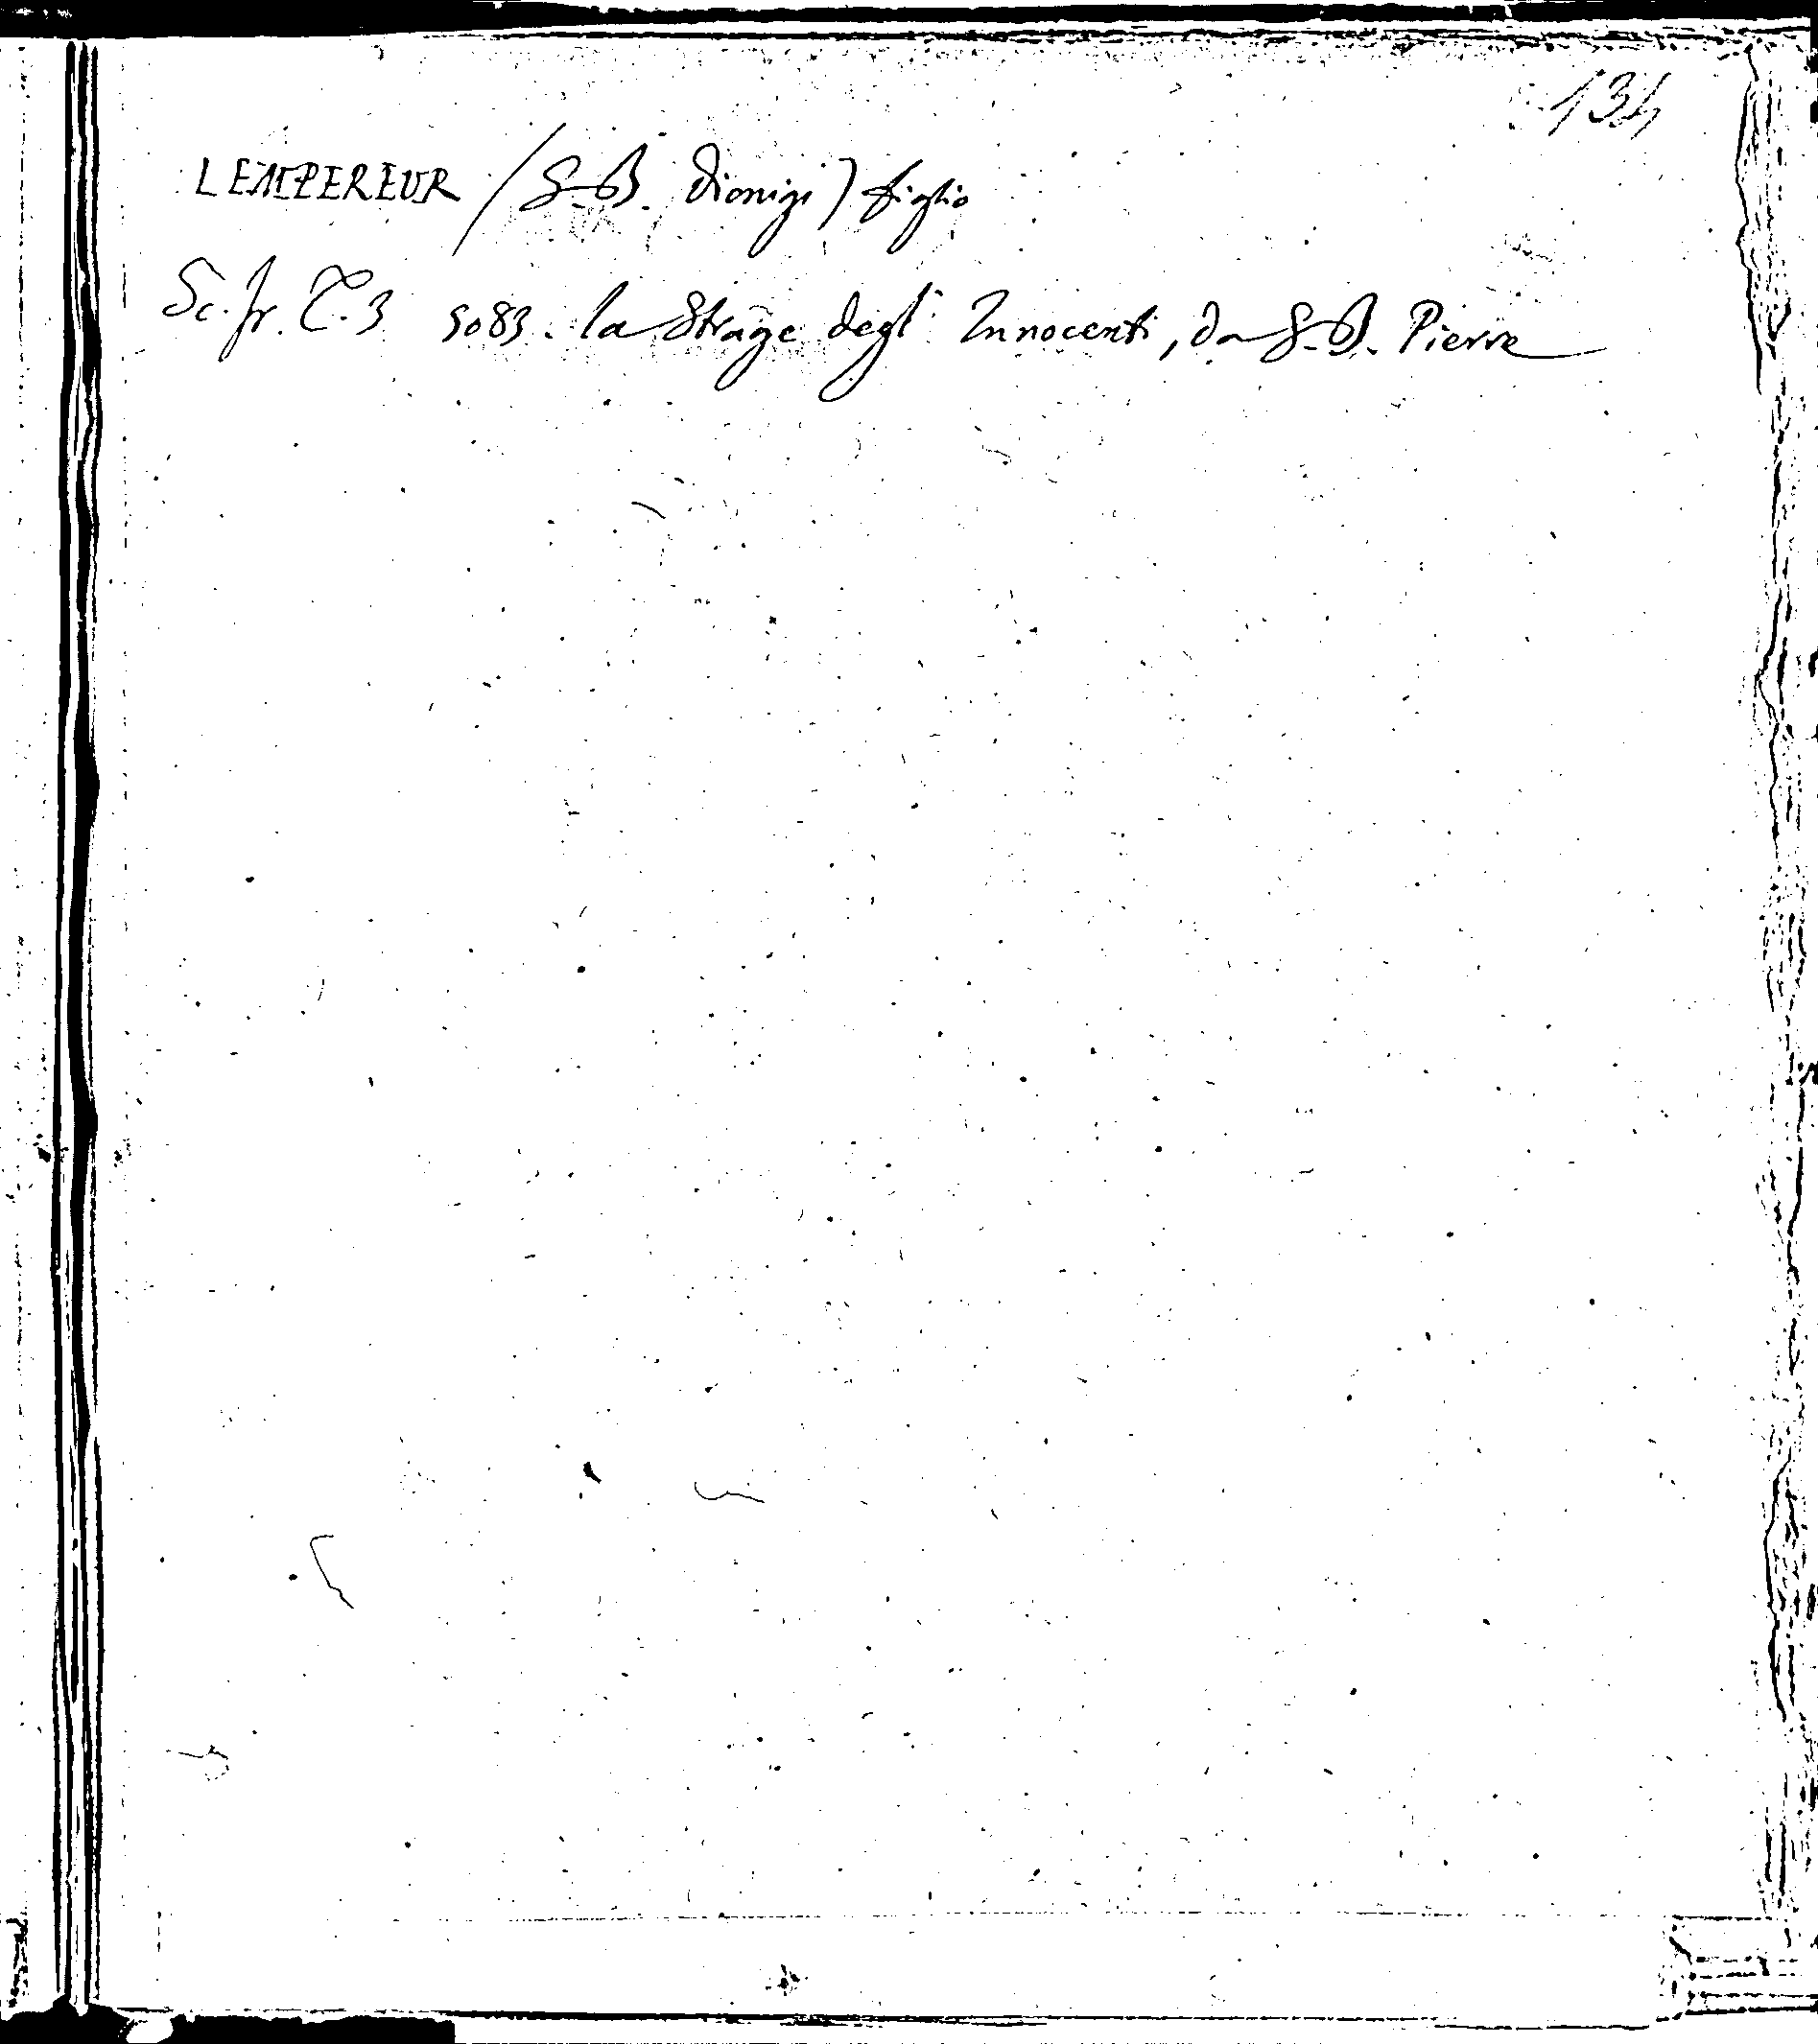 134
LEMPEREUR (G. B. Dionigi) figlio
Sc. fr. T. 3 5083. la Strage degl' Innocenti, da G. B. Pierre